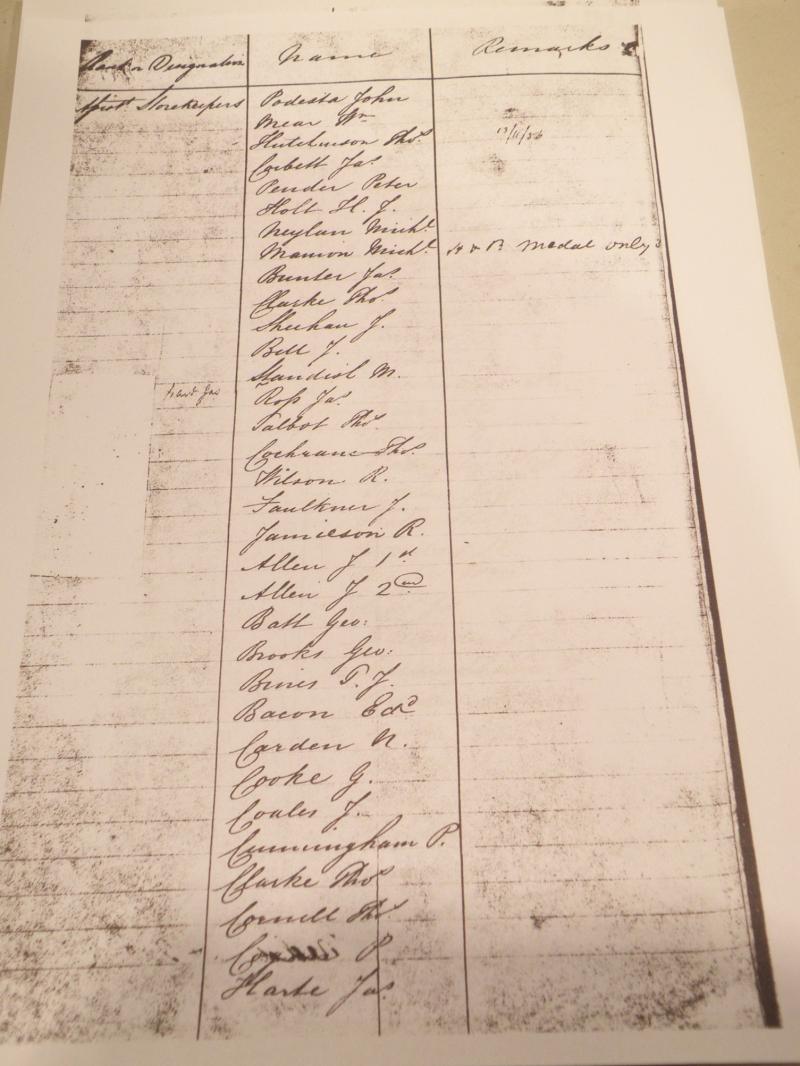 Rank or Designation Name Remarks
Assist Storekeepers Podesta John
Mear Wm
Hutchinson Thos.
Corbett Jas.
Pender Peter
Holt H. J.
Neylan Michl.
Manion Michl. A & B. medal only
Bunter Jas.
Clarke Thos.
Sheehan J.
Bell J.
Standish M.
Ross Jas.
Talbot Thos.
Cochrane Thos.
Wilson R.
Faulkner J.
Jamieson R.
Allen J 1st
Allen J 2nd
Batt Geo:
Brooks Geo:
Bines T. J.
Bacon Edd
Carden N.
Cooke G.
Coales J.
Cunningham P.
Clarke Thos
Cornell Thos.
P
Harte Jas.